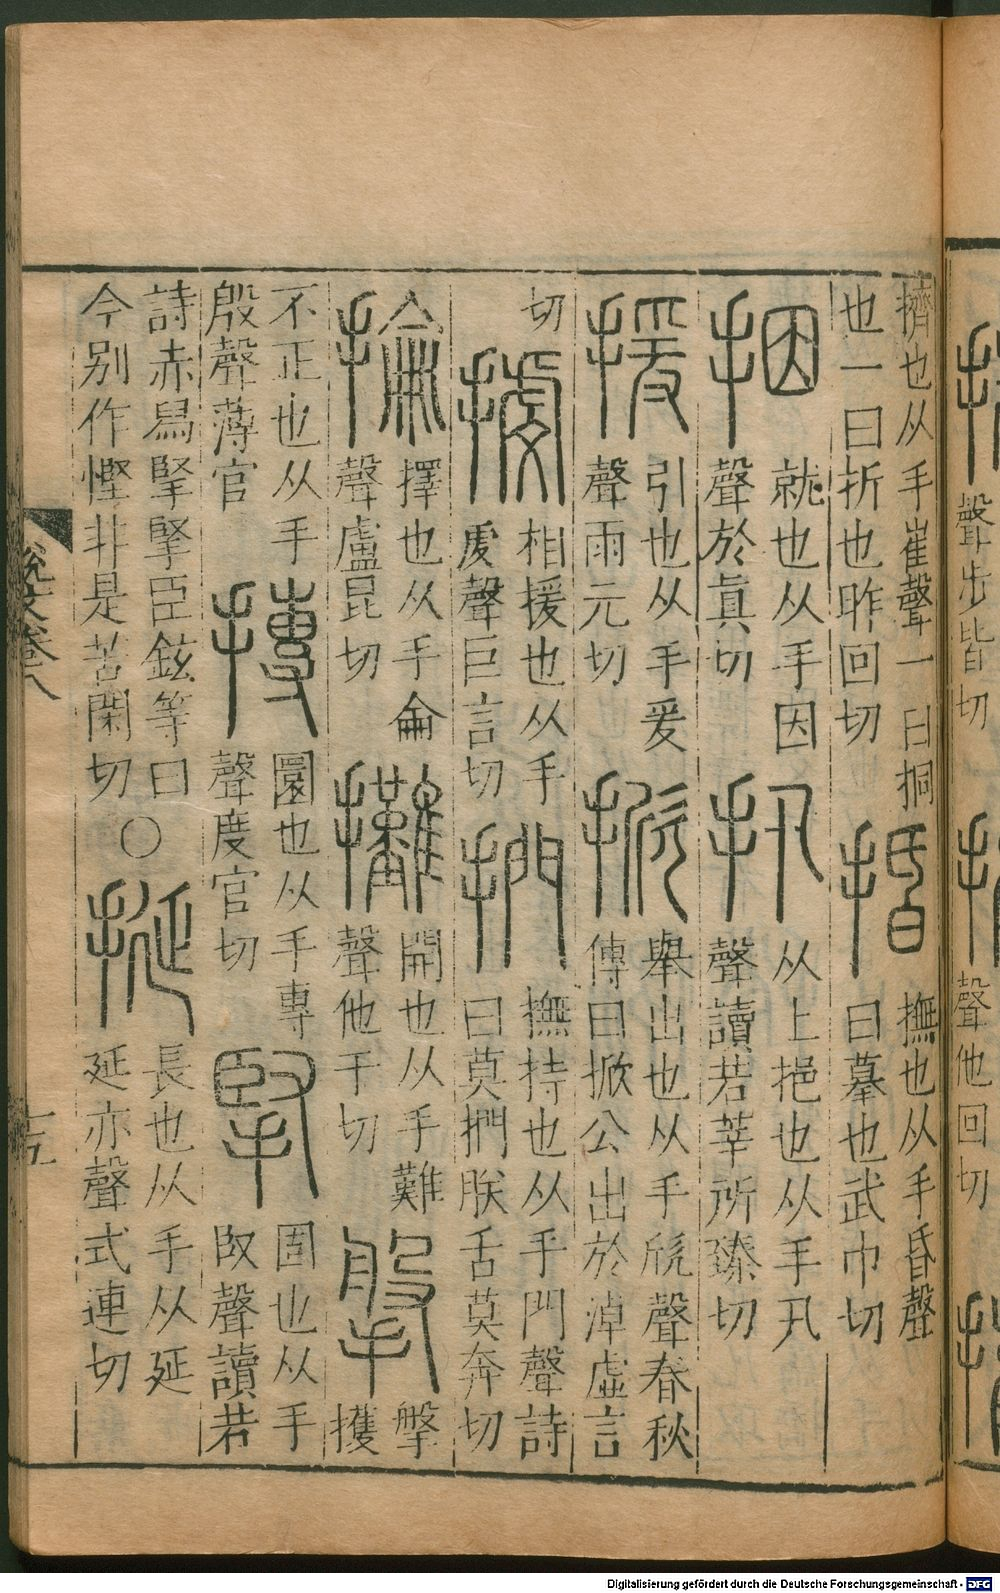 聲步皆切
聲他回切
擠也从手崔聲一曰挏也一曰折也昨回切 捪 撫也从手昏聲曰摹也武巾切
捆 就也从手因聲於真切 扟 从上挹也从手卂聲讀若莘所臻切
援 引也从手爰聲雨元切 掀 舉出也从手欣聲春秋傳曰掀公出於淖虛言
切 相援也从手虔聲巨言切 捫 撫持也从手門聲詩曰莫捫朕舌莫奔切
掄 擇也从手侖聲盧昆切 攤 開也从手難聲他干切 搫 搫擭
不正也从手殷聲薄官 摶 園也从手專聲度官切 掔 固也从手臤聲讀若
詩赤舄掔掔臣鉉等曰今別作慳非是苦閑切 〇 挻 長也从手从延延亦聲式連切
說文卷八 十五
Digitalisierung gefördert durch die Deutsche Forschungsgemeinschaft - DFG